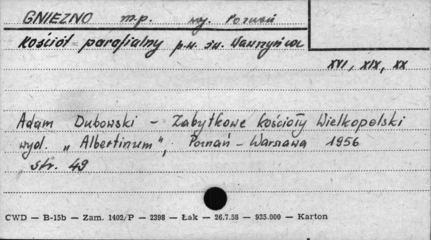 GNIEZNO m.p. woj. Poznań
Kościół parafialny p.w. św. Wawrzyńca
XVI, XIX, XX
Adam Dubowski - Zabytkowe kościoły Wielkopolski
wyd. „Albertinum", Poznań - Warszawa 1956
str. 49
CWD — B-15b — Zam. 1402/P — 2398 — Łak — 26.7.58 — 935.000 — Karton